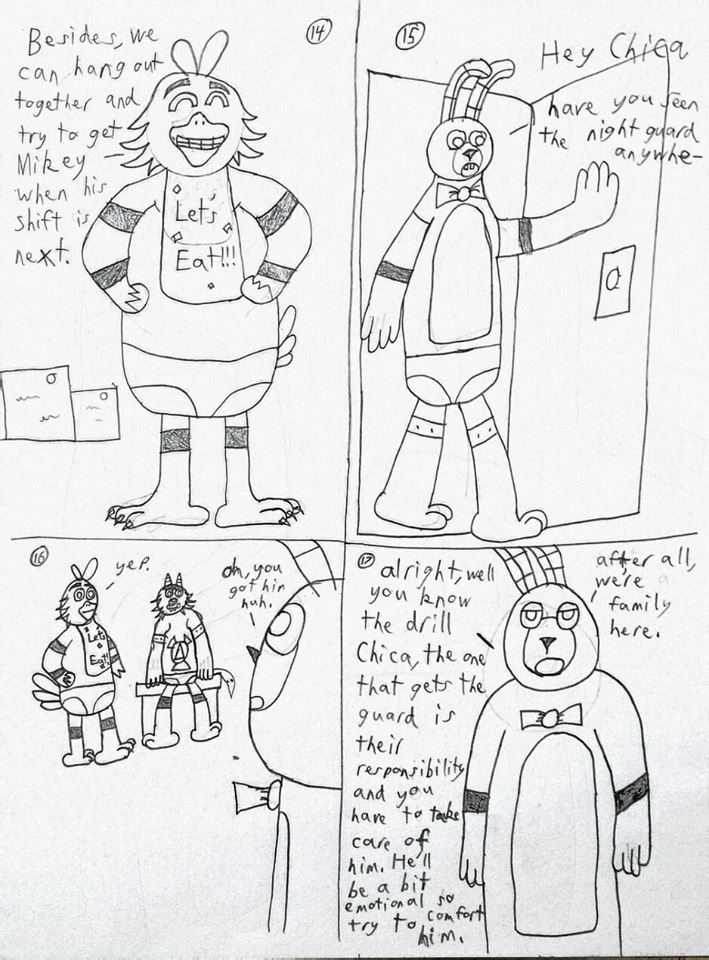 14
Besides, we
can hang out
together and
try to get
Mikey
when his
shift is
next.
Let's
Eat!!!
15
Hey Chica
have you seen
the night guard
anywhe-
16
yep.
Let's
Eat!!!
oh, you
got him
huh.
17
alright, well
you know
the drill
Chica, the one
that gets the
guard is
their
responsibility
and you
have to take
care of
him. He'll
be a bit
emotional so
try to comfort
him.
after all,
we're a
family
here.